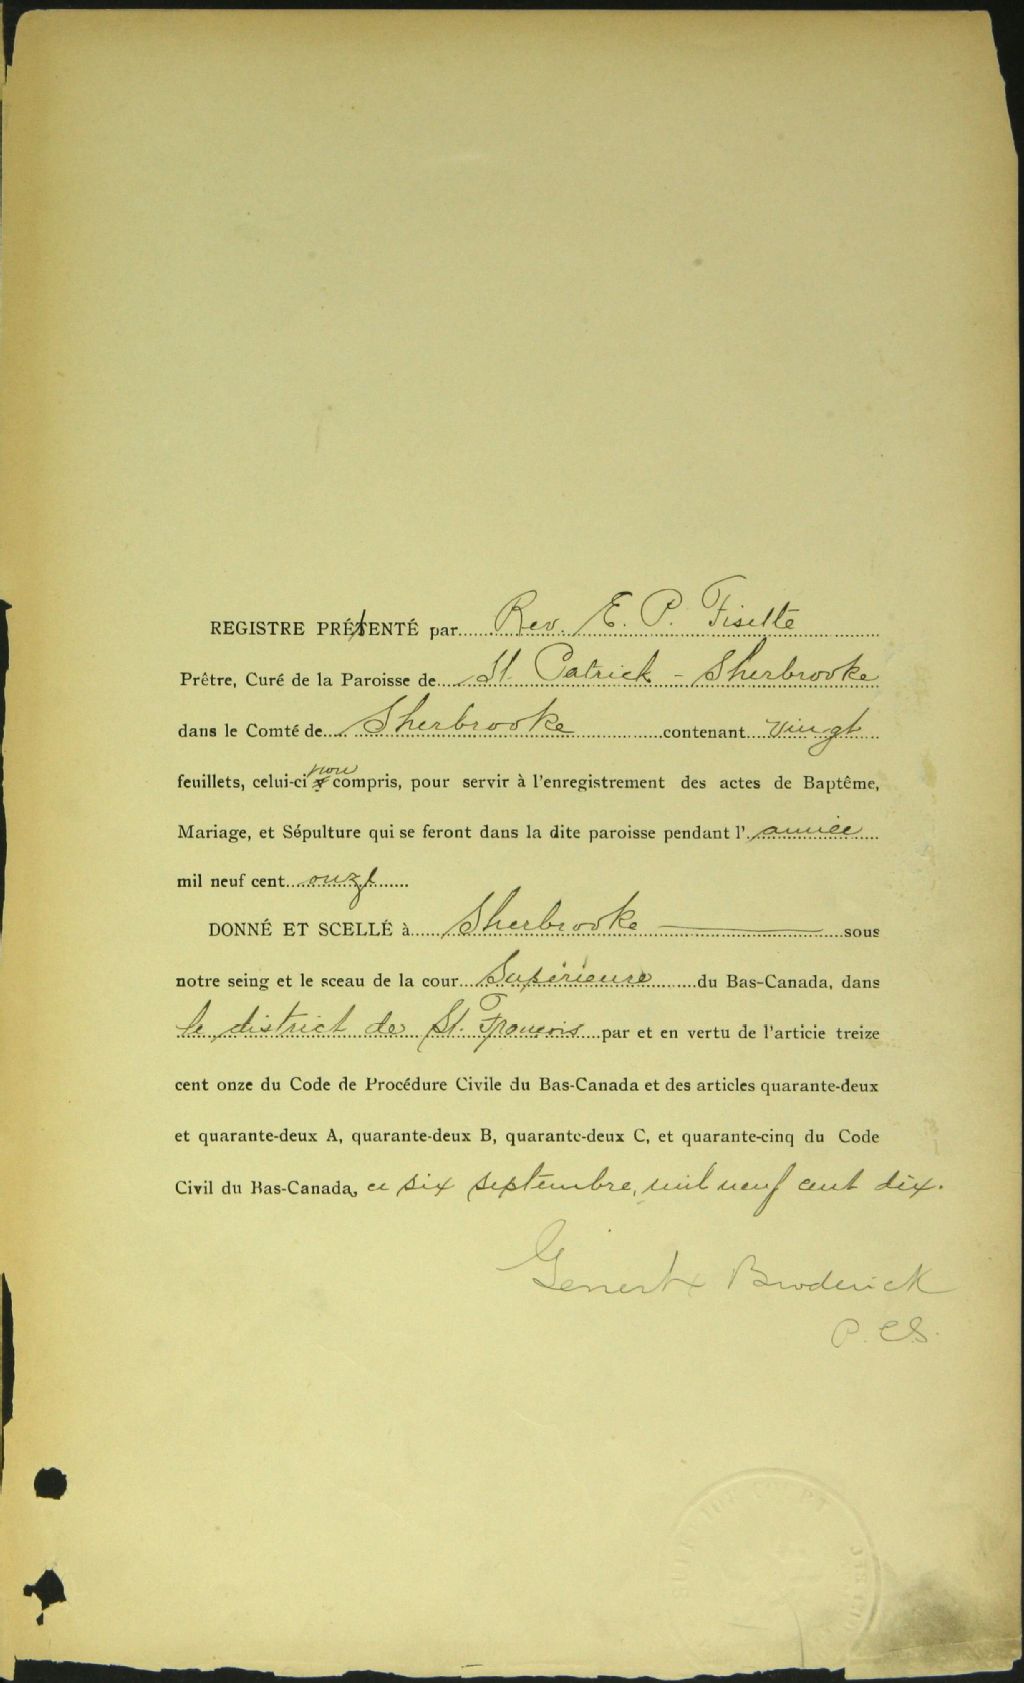 REGISTRE PRÉSENTÉ par Rev. E. P. Fisette
Prêtre, Curé de la Paroisse de St. Patrick - Sherbrooke
dans le Comté de Sherbrooke contenant vingt
feuillets, celui-ci non compris, pour servir à l'enregistrement des actes de Baptême,
Mariage, et Sépulture qui se feront dans la dite paroisse pendant l'année
mil neuf cent onze
DONNÉ ET SCELLÉ à Sherbrooke sous
notre seing et le sceau de la cour Supérieure du Bas-Canada, dans
le district de St. François par et en vertu de l'articie treize
cent onze du Code de Procédure Civile du Bas-Canada et des articles quarante-deux
et quarante-deux A, quarante-deux B, quarante-deux C, et quarante-cinq du Code
Civil du Bas-Canada, ce six septembre, mil neuf cent dix.
Broderick
P. C.S.